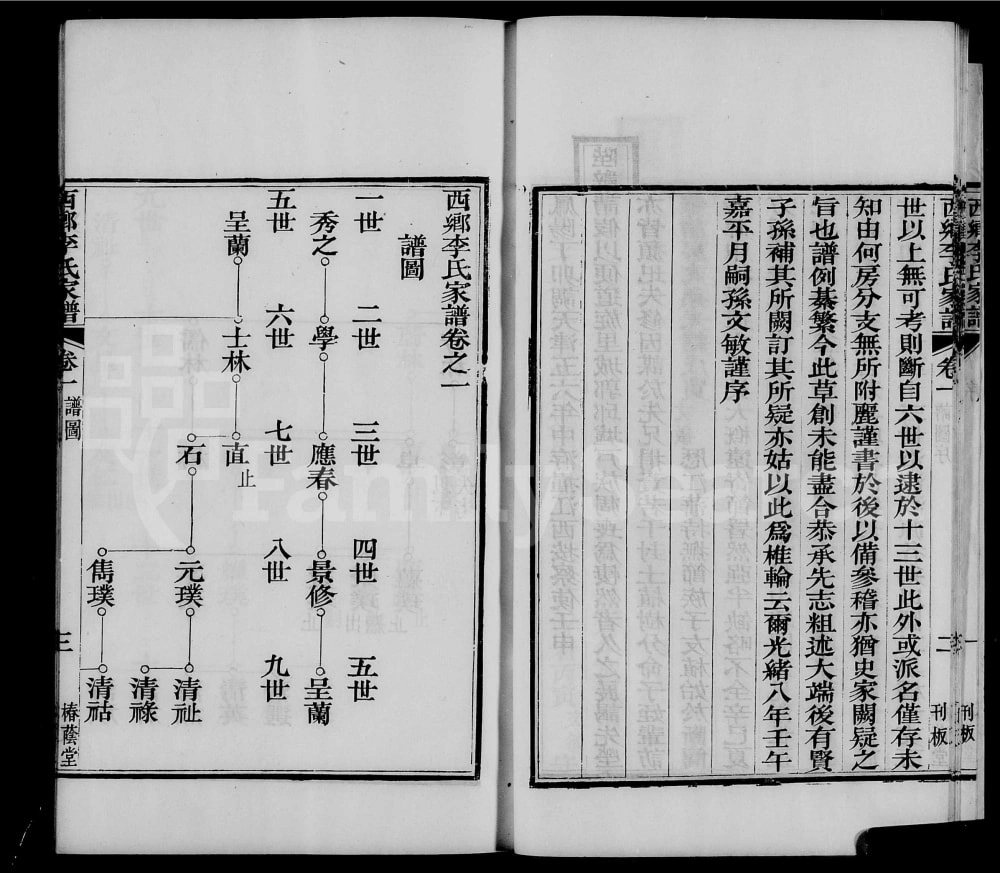 世以上無可考則斷自六世以逮於十三世此外或派名僅存未
知由何房分支無所附麗謹書於後以備參稽亦猶史家闕疑之
旨也譜例綦繁今此草創未能盡合恭承先志粗述大端後有賢
子孫補其所闕訂其所疑亦姑以此爲椎輪云爾光緒八年壬午
嘉平月嗣孫文敏謹序
西鄉李氏家譜
卷一
二
刊板
西鄉李氏家譜卷之一
譜圖
一世
二世
三世
四世
五世
秀之
學
應春
景修
呈蘭
五世
六世
七世
八世
九世
呈蘭
士林
直
止
石
元璞
清祉
清祿
雋璞
清祜
西鄉李氏家譜
卷一
譜圖
三
椿蔭堂
Family